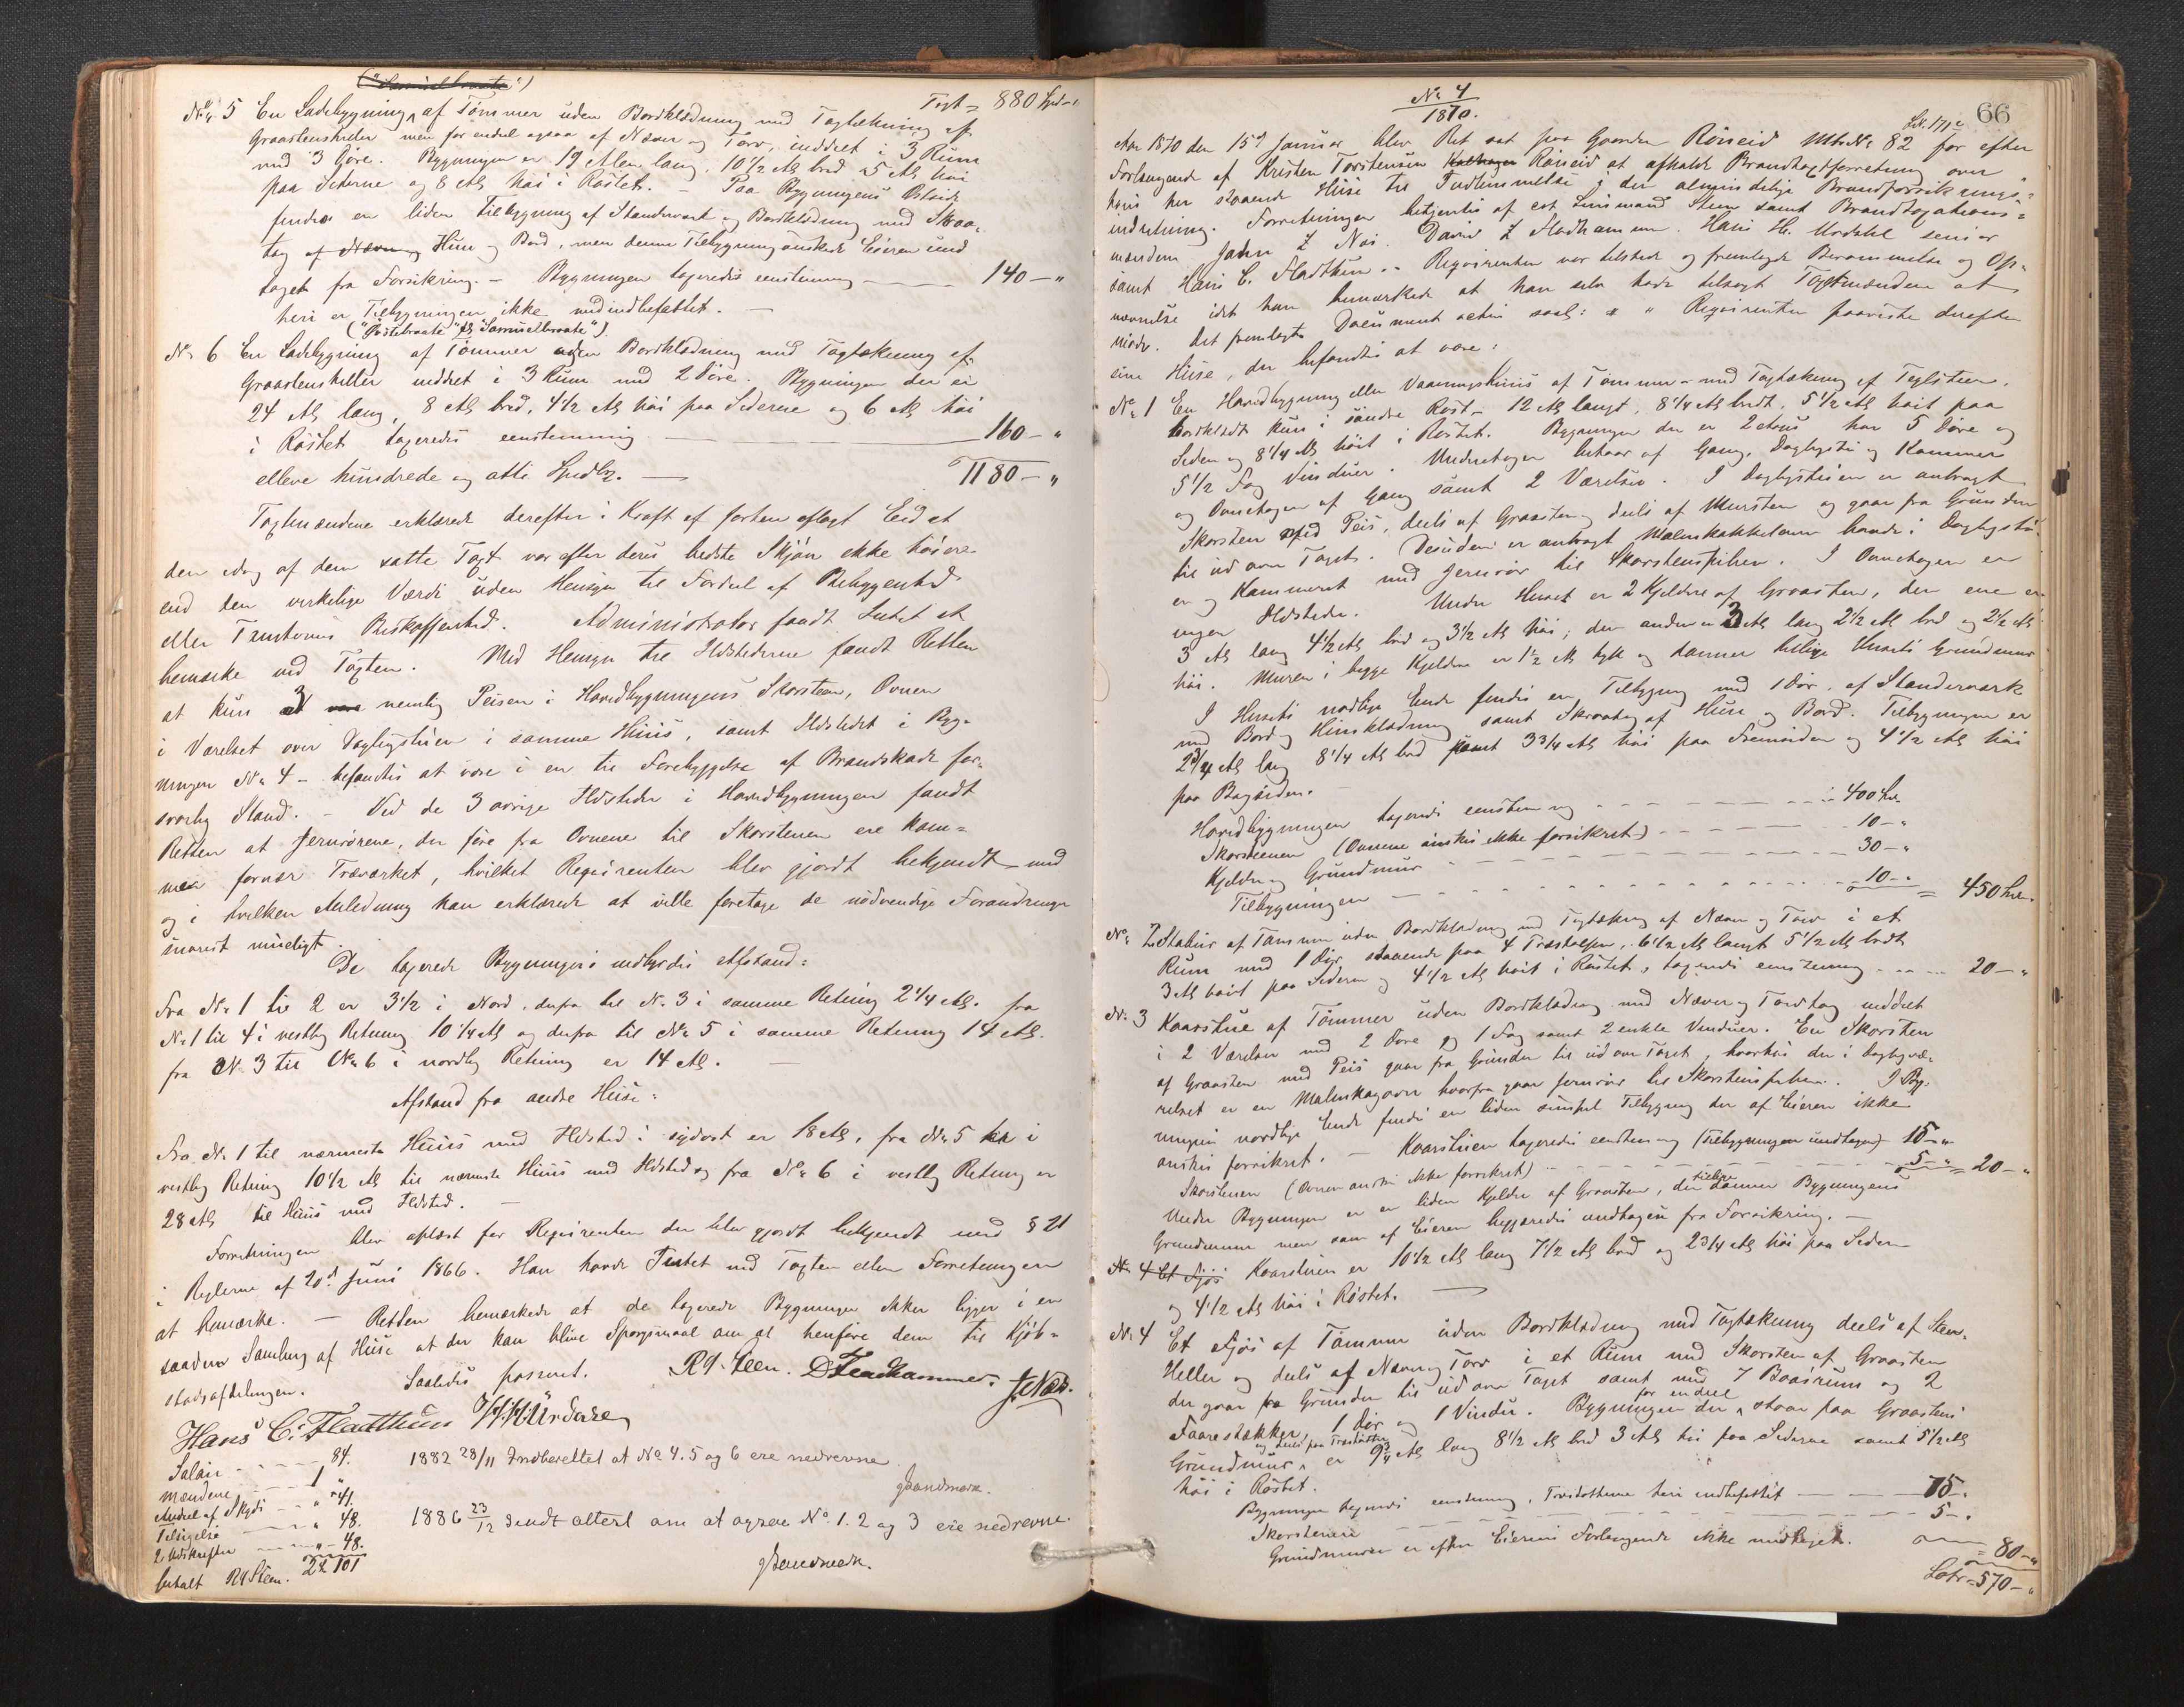 ("Samuelbraate")
Tagt = 880 Spd "
No 5 En Ladebygning af Tømmer uden Bordklædning med Tagtækning af
Graastensheller men for endeel ogsaa af Næver og Torv, inddeelt i 3 Rum
med 3 Døre. Bygningen er 19 Alen lang, 10 1/2 Al bred 5 Al høi
paa Siderne og 8 Al høi i Røstet. - Paa Bygningens Østside
findes en liden Tilbygning af Standerværk og Bordklædning med Skraa-
tag af Næver og Hun og Bord, men denne Tilbygning ønskede Eieren und-
taget fra Forsikring. - Bygningen taxeredes eenstemmig 140 - "
heri er Tilbygningen ikke medindbefattet. -
("Østebraate" "Samuelbraate")
No 6 En Ladebygning af Tømmer uden Bordklædning med Tagtækning af
Graastensheller inddeelt i 3 Rum med 2 Døre. Bygningen der er
24 Al lang, 8 Al bred, 4 1/2 Al høi paa Siderne og 6 Al høi
i Røstet taxeredes eenstemmig 160 - "
elleve hundrede og otti Spdlr. - 1180 - "
Taxtmændene erklærede derefter i Kraft af forhen aflagt Eed at
den idag af dem satte Taxt var efter deres bedste Skjøn ikke høiere
end den virkelige Værdi uden Hensyn til Fordeel af Beliggenhed
eller Tomtens Beskaffenhed. Administrator fandt Intet at
bemærke ved Taxten. Med Hensyn til Ildstederne fandt Retten
at kun 3 nemlig Peisen i Hovedbygningens Skorsteen, Ovnen
i Værelset over Dagligstuen i samme Huus, samt Ildstedet i Byg-
ningen No 4 - befandtes at være i en til Forebyggelse af Brandskade for-
svarlig Stand. - Ved de 3 øvrige Ildsteder i Hovedbygningen fandt
Retten at Jernrørene, der føre fra Ovnene til Skorstenen ere kom-
men fornær Træværket, hvilket Reqvirenten blev gjordt bekjendt med
og i hvilken Anledning han erklærede at ville foretage de nødvendige Forandringer
snarest mueligt.
De taxerede Bygningers indbyrdes Afstand:
Fra No 1 til 2 er 3 1/2 i Nord, derfra til No 3 i samme Retning 2 1/4 Al. fra
No 1 til 4 i vestlig Retning 10 1/4 Al og derfra til No 5 i samme Retning 14 Al.
fra No 3 til No 6 i nordlig Retning er 14 Al. -
Afstand fra andre Huse:
Fra No 1 til nærmeste Huus med Ildsted i sydost er 18 Al, fra No 5 i
vestlig Retning 10 1/2 Al til nærmeste Huus med Ildsted og fra No 6 i vestlig Retning er
28 Al til Huus med Ildsted. -
Forretningen blev oplæst for Reqvirenten der blev gjordt bekjendt med § 21
i Reglerne af 20d Juni 1866. Han havde Intet ved Taxten eller Forretningen
at bemærke. - Retten bemærkede at de taxerede Bygninger ikke ligger i en
saadan Samling af Huse at der kan blive Spørgsmaal om at henføre dem til Kjøb-
stadsafdelingen.
Saaledes passeret. R Steen. D Stadhammer. J Z Næs.
Hans C. Fladthun H H Urdahl
Salair 84.
Mændene 1 "
Andeel af Skyds " 41.
Tilsigelse " 48.
2 Udskrifter " 48.
betalt R Steen. 2 101
1882 28/11 Indberettet at No 4. 5 og 6 ere nedrevne.
Sandmark.
1886 23/12 Sendt attest om at ogsaa No. 1. 2 og 3 ere nedrevne.
Sandmark.
No 4
1870.
66
Aar 1870 den 15d Januar blev Ret sat paa Gaarden Röneid Mt. No 82 Lb. 171a for efter
Forlangende af Kristen Torstensen Röneid at afholde Brandtaxtforretning over
hans her staaende Huse til Indlemmelse i den almindelige Brandforsikrings-
indretning. Forretningen betjentes af cst Lensmand Steen samt Brandtaxations-
mændene John Z Næs. David Z Stadhammer. Hans H. Urdahl senior
samt Hans C. Fladthun. - Reqvirenten var tilstede og fremlagde Berammelse og Op-
nævnelse idet han bemærkede at han selv havde tilsagt Taxtmændene at
møde. Det fremlagte Document actis saal: " Reqvirenten paaviste derefter
sine Huse, der befandtes at være:
No 1 En Hovedbygning eller Vaaningshuus af Tømmer - med Tagtækning af Teglsteen.
Bordklædt kun i søndre Røst - 12 Al langt, 8 1/4 Al bredt, 5 1/2 Al høit paa
Siden og 8 1/4 Al høit i Røstet. Bygningen der er 2 etages har 5 Døre og
5 1/2 Fag Vinduer. Underetagen bestaar af Gang, Dagligstue og Kammer
og Overetagen af Gang samt 2 Værelser. I Dagligstuen er anbragt
Skorsten med Peis, deels af Graasten og deels af Mursten og gaar fra Grunden
til ud over Taget. Desuden er anbragt Malmkakkelovn baade i Dagligstu-
en og Kammeret med Jernrør til Skorstenspiben. I Overetagen er
ingen Ildsteder. Under Huset er 2 Kjeldere af Graasten, den ene er
3 Al lang 4 1/2 Al bred og 3 1/2 Al høi; den anden er 3 Al lang 2 1/2 Al bred og 2 1/2 Al
høi. Muren i begge Kjeldere er 1 1/2 Al tyk og danner tillige Husets Grundmuur
I Husets nordlige Ende findes en Tilbygning med 1 Dør, af Standerværk
med Bord og Hunklædning samt Skraatag af Hun og Bord. Tilbygningen er
2 3/4 Al lang 8 1/4 Al bred samt 3 3/4 Al høi paa Fremsiden og 4 1/2 Al høi
paa Bagsiden. -
Hovedbygningen taxeredes eenstemmig 400
Skorstenen (Ovnene ønskes ikke forsikret) 10 - "
Kjelder og Grundmuur 30 - "
Tilbygningen 10 - " = 450
No 2 Stabur af Tømmer uden Bordklædning med Tagtækning af Næver og Torv i et
Rum med 1 Dør, staaende paa 4 Træstolper, 6 1/2 Al langt 5 1/2 Al bredt
3 Al høit paa Siderne og 4 1/2 Al høit i Røstet, taxeredes eenstemmig 20 - "
No 3 Kaarstue af Tømmer uden Bordklædning med Næver og Torvtag inddeelt
i 2 Værelser med 2 Døre og 1 Fag samt 2 enkle Vinduer. En Skorsten
af Graasten med Peis gaar fra Grunden til ud over Taget, hvorhos der i Dagligvæ-
relset er en Malmkagovn hvorfra gaar Jernrør til Skorstenspiben. I Byg-
ningens nordlige Ende findes en liden simpel Tilbygning der af Eieren ikke
ønskes forsikret. - Kaarstuen taxeredes eenstemmig (Tilbygningen undtagen) 15 - "
Skorstenen (Ovnen ønskes ikke forsikret) 5 - " = 20 - "
Under Bygningen er en liden Kjelder af Graasten, der tillige danner Bygningens
Grundmuur men som af Eieren begjæredes undtagen fra Forsikring. -
No 4 Et Fjøs Kaarstuen er 10 1/2 Al lang 7 1/2 Al bred og 2 3/4 Al høi paa Siderne
og 4 1/2 Al høi i Røstet. -
No 4 Et Fjøs af Tømmer uden Bordklædning med Tagtækning deels af Steen-
Heller og deels af Næver og Torv i et Rum med Skorsten af Graasten
der gaar fra Grunden til ud over Taget samt med 7 Baasrum og 2
Faarestækker, 1 Dør og 1 Vindu. Bygningen der for endeel staar paa Graasteens
Grundmuur og deels paa Træstolper er 9 3/4 Al lang 8 1/2 Al bred 3 Al høi paa Siderne samt 5 1/2 Al
høi i Røstet.
Bygningen taxeredes eenstemmig, Træstolperne heri indbefattet 75 - "
Skorstenen 5 - "
Grundmuren er efter Eierens Forlangende ikke medtaget. 80 - "
Late = 570 - "